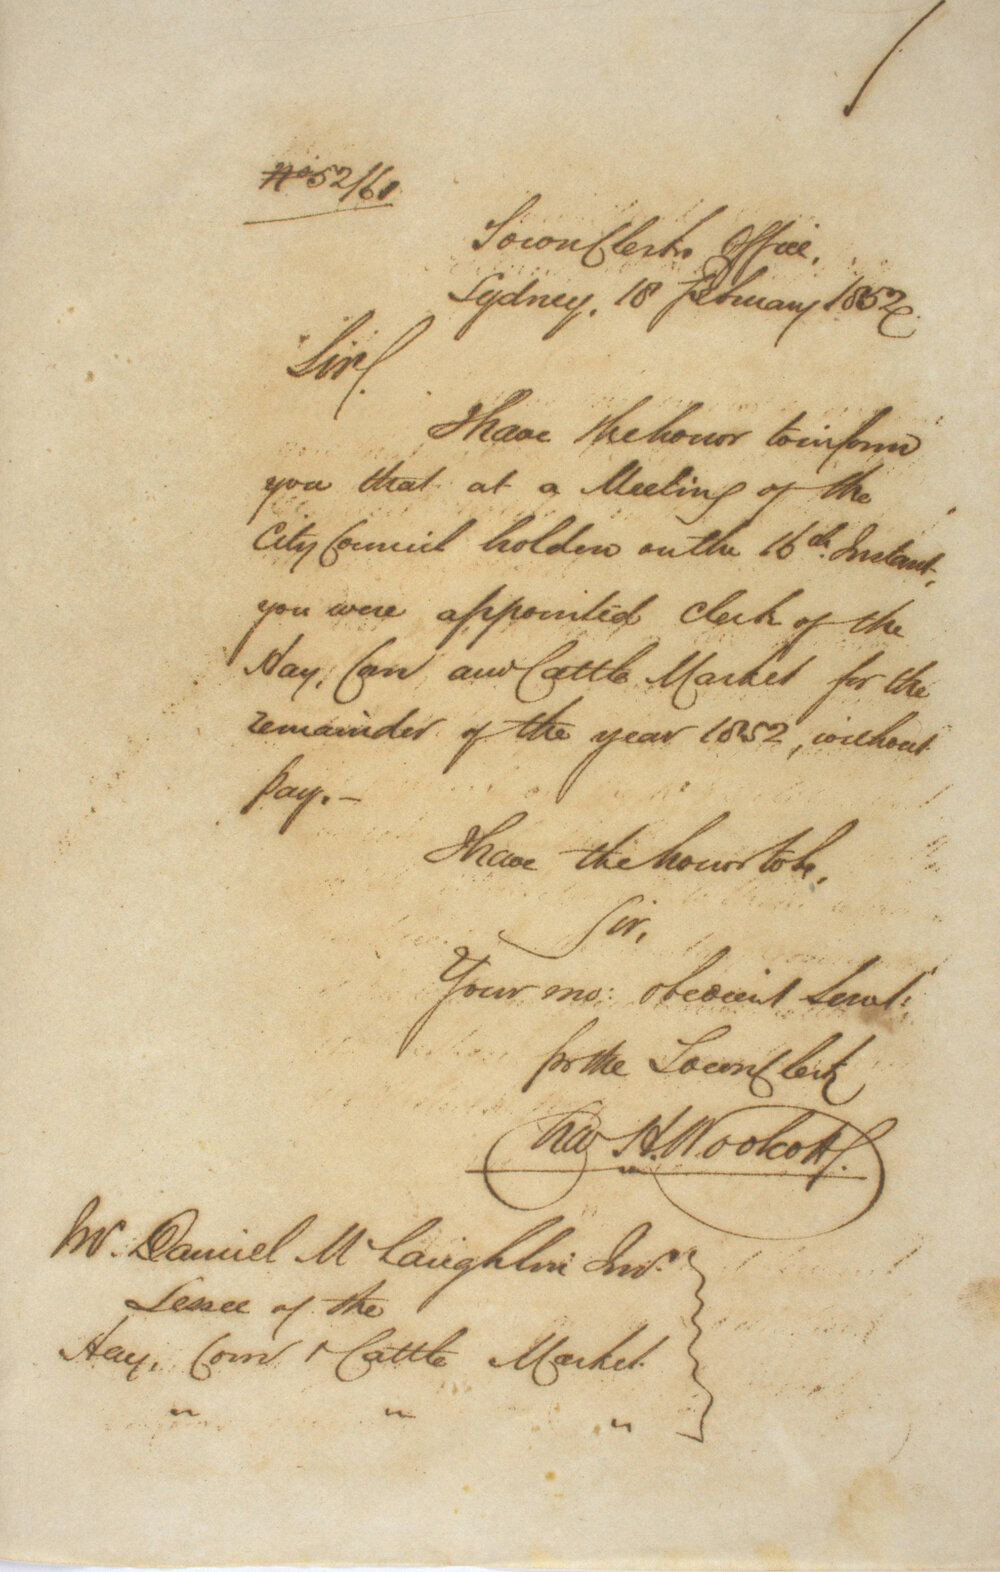 No 52/61
Town Clerks Office,
Sydney, 18 February 1852.
Sir,
I have the honor to inform
you that at a Meeting of the
City Council holden on the 16th. Instant,
you were appointed Clerk of the
Hay, Corn and Cattle Market for the
remainder of the year 1852, without
pay. —
I have the honor to be,
Sir,
Your mo: obedient Servt:
for the Town Clerk
Chas H. Woolcott.
Mr. Daniel McLaughlin Junr.
Lessee of the
Hay, Corn & Cattle Market
" " "